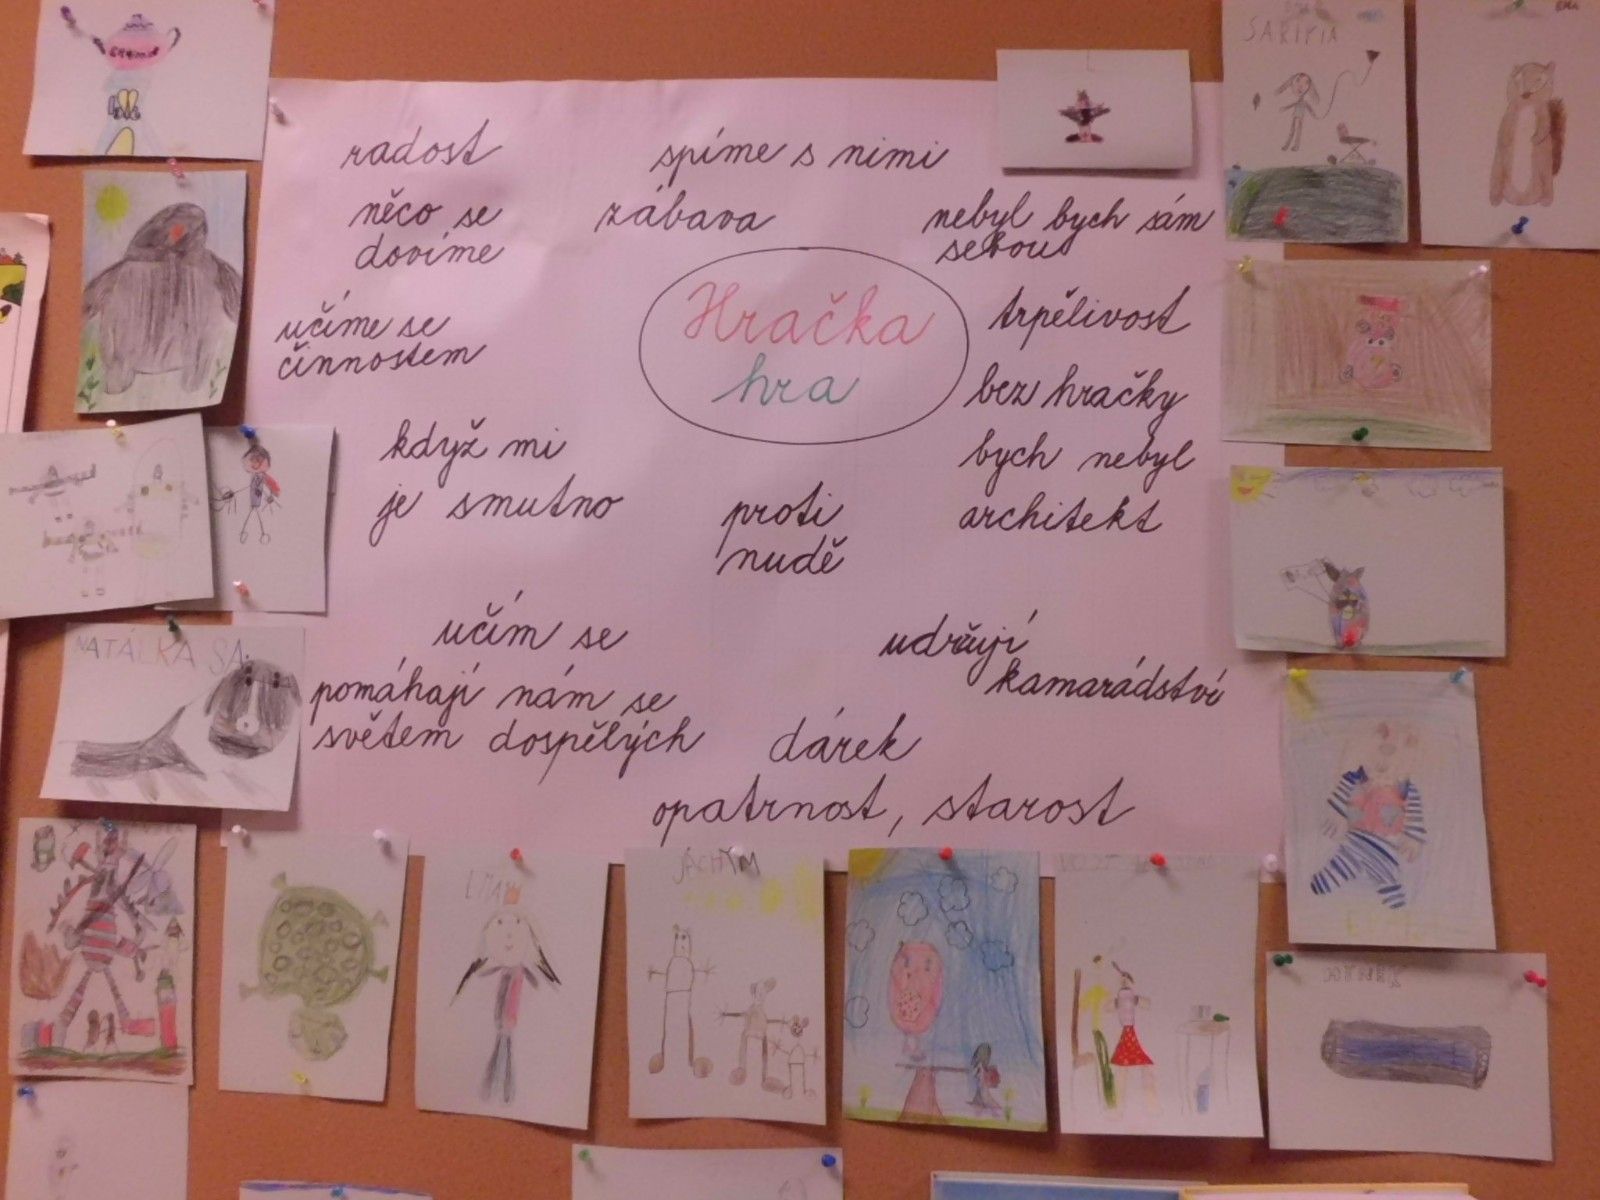 radost
spíme s nimi
něco se
dovíme
zábava
nebyl bych sám
sebou
Hračka
hra
učíme se
činnostem
trpělivost
bez hračky
bych nebyl
architekt
když mi
je smutno
proti
nudě
učím se
pomáhají nám se
světem dospělých
udržují
kamarádství
dárek
opatrnost, starost
NATÁLKA SA.
EMA
JÁCHYM
HYNEK